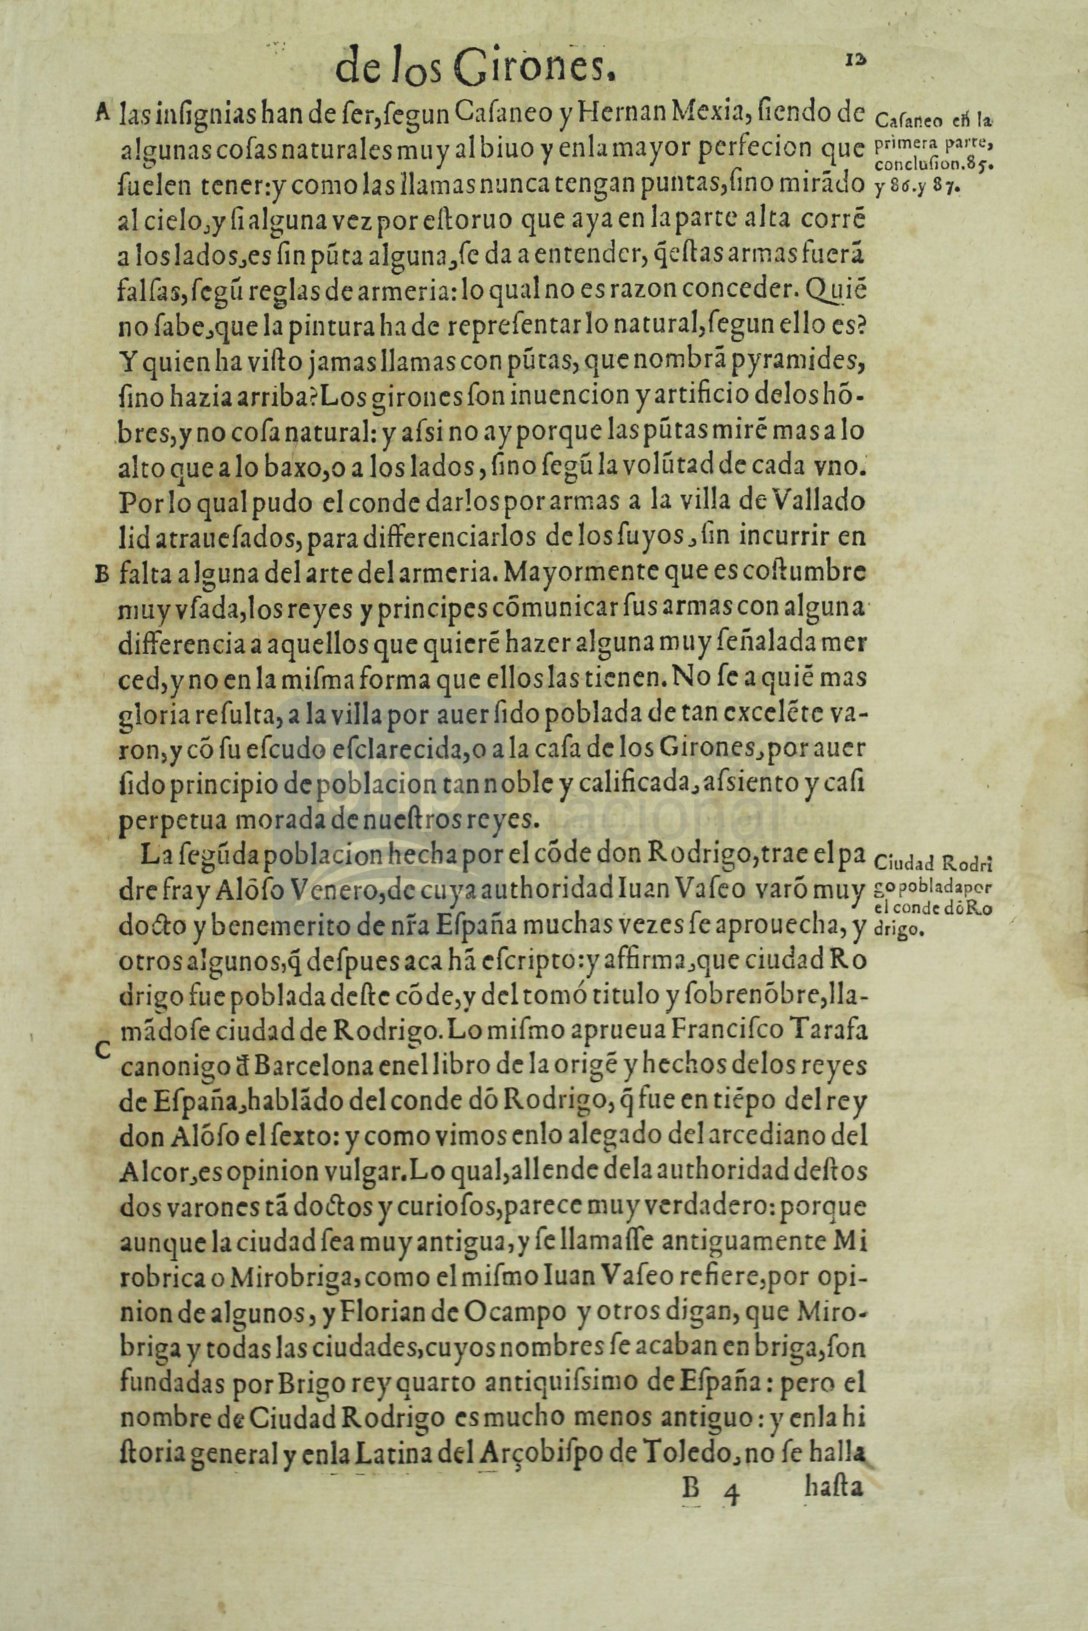 de los Girones.
12
A las insignias han de ſer, ſegun Caſaneo y Hernan Mexia, ſiendo de
algunas coſas naturales muy al biuo y en la mayor perfecion que
ſuelen tener: y como las llamas nunca tengan puntas, ſino mirādo
al cielo, y ſi alguna vez por eſtoruo que aya en la parte alta corrē
a los lados, es ſin pūta alguna, ſe da a entender, q̄ eſtas armas fuerā
falſas, ſegū reglas de armeria: lo qual no es razon conceder. Quiē
no ſabe, que la pintura ha de repreſentar lo natural, ſegun ello es?
Y quien ha viſto jamas llamas con pūtas, que nombrā pyramides,
ſino hazia arriba? Los girones ſon inuencion y artificio de los hō-
bres, y no coſa natural: y aſsi no ay porque las pūtas mirē mas a lo
alto que a lo baxo, o a los lados, ſino ſegū la volūtad de cada vno.
Por lo qual pudo el conde darlos por armas a la villa de Vallado
lid atraueſados, para differenciarlos de los ſuyos, ſin incurrir en
B falta alguna del arte del armeria. Mayormente que es coſtumbre
muy vſada, los reyes y principes cōmunicar ſus armas con alguna
differencia a aquellos que quierē hazer alguna muy ſeñalada mer
ced, y no en la miſma forma que ellos las tienen. No ſe a quiē mas
gloria reſulta, a la villa por auer ſido poblada de tan excelēte va-
ron, y cō ſu eſcudo eſclarecida, o a la caſa de los Girones, por auer
ſido principio de poblacion tan noble y calificada, aſsiento y caſi
perpetua morada de nueſtros reyes.
La ſegūda poblacion hecha por el cōde don Rodrigo, trae el pa
dre fray Alōſo Venero, de cuya authoridad Iuan Vaſeo varō muy
docto y benemerito de nr̃a Eſpaña muchas vezes ſe aprouecha, y
otros algunos, q̄ deſpues aca hā eſcripto: y affirma, que ciudad Ro
drigo fue poblada deſte cōde, y del tomó titulo y ſobrenōbre, lla-
mādoſe ciudad de Rodrigo. Lo miſmo aprueua Franciſco Tarafa
C canonigo d̄ Barcelona en el libro de la origē y hechos de los reyes
de Eſpaña, hablādo del conde dō Rodrigo, q̄ fue en tiēpo del rey
don Alōſo el ſexto: y como vimos en lo alegado del arcediano del
Alcor, es opinion vulgar. Lo qual, allende de la authoridad deſtos
dos varones tā doctos y curioſos, parece muy verdadero: porque
aunque la ciudad ſea muy antigua, y ſe llamaſſe antiguamente Mi
robrica o Mirobriga, como el miſmo Iuan Vaſeo refiere, por opi-
nion de algunos, y Florian de Ocampo y otros digan, que Miro-
briga y todas las ciudades, cuyos nombres ſe acaban en briga, ſon
fundadas por Brigo rey quarto antiquiſsimo de Eſpaña: pero el
nombre de Ciudad Rodrigo es mucho menos antiguo: y en la hi
ſtoria general y en la Latina del Arçobiſpo de Toledo, no ſe halla
B 4 haſta
Caſaneo en la
primera parte,
concluſion. 85.
y 86. y 87.
Ciudad Rodri
go poblada por
el conde dō Ro
drigo.